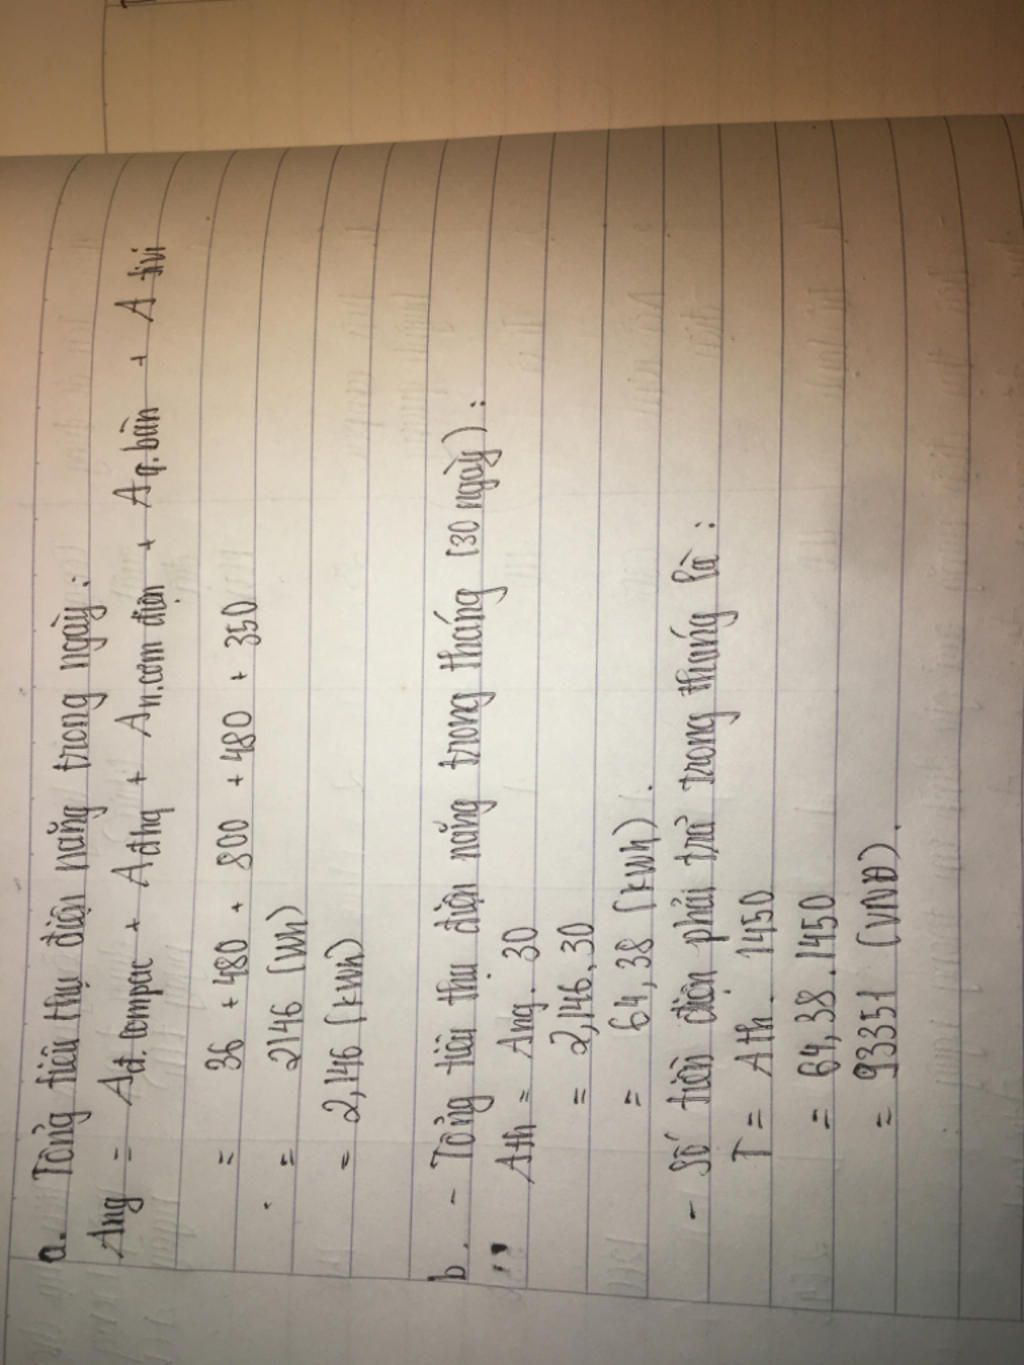 a. Tổng tiêu thụ điện năng trong ngày:
Ang = Ađ.compac + Ađhq + An.cơm điện + Aq.bàn + A tivi
= 36 + 480 + 800 + 480 + 350
= 2146 (Wh)
= 2,146 (kWh)
b. - Tổng tiêu thụ điện năng trong tháng (30 ngày):
Ath = Ang. 30
= 2,146.30
= 64,38 (kWh).
- Số tiền điện phải trả trong tháng là:
T = Ath. 1450
= 64,38.1450
= 93351 (VNĐ).